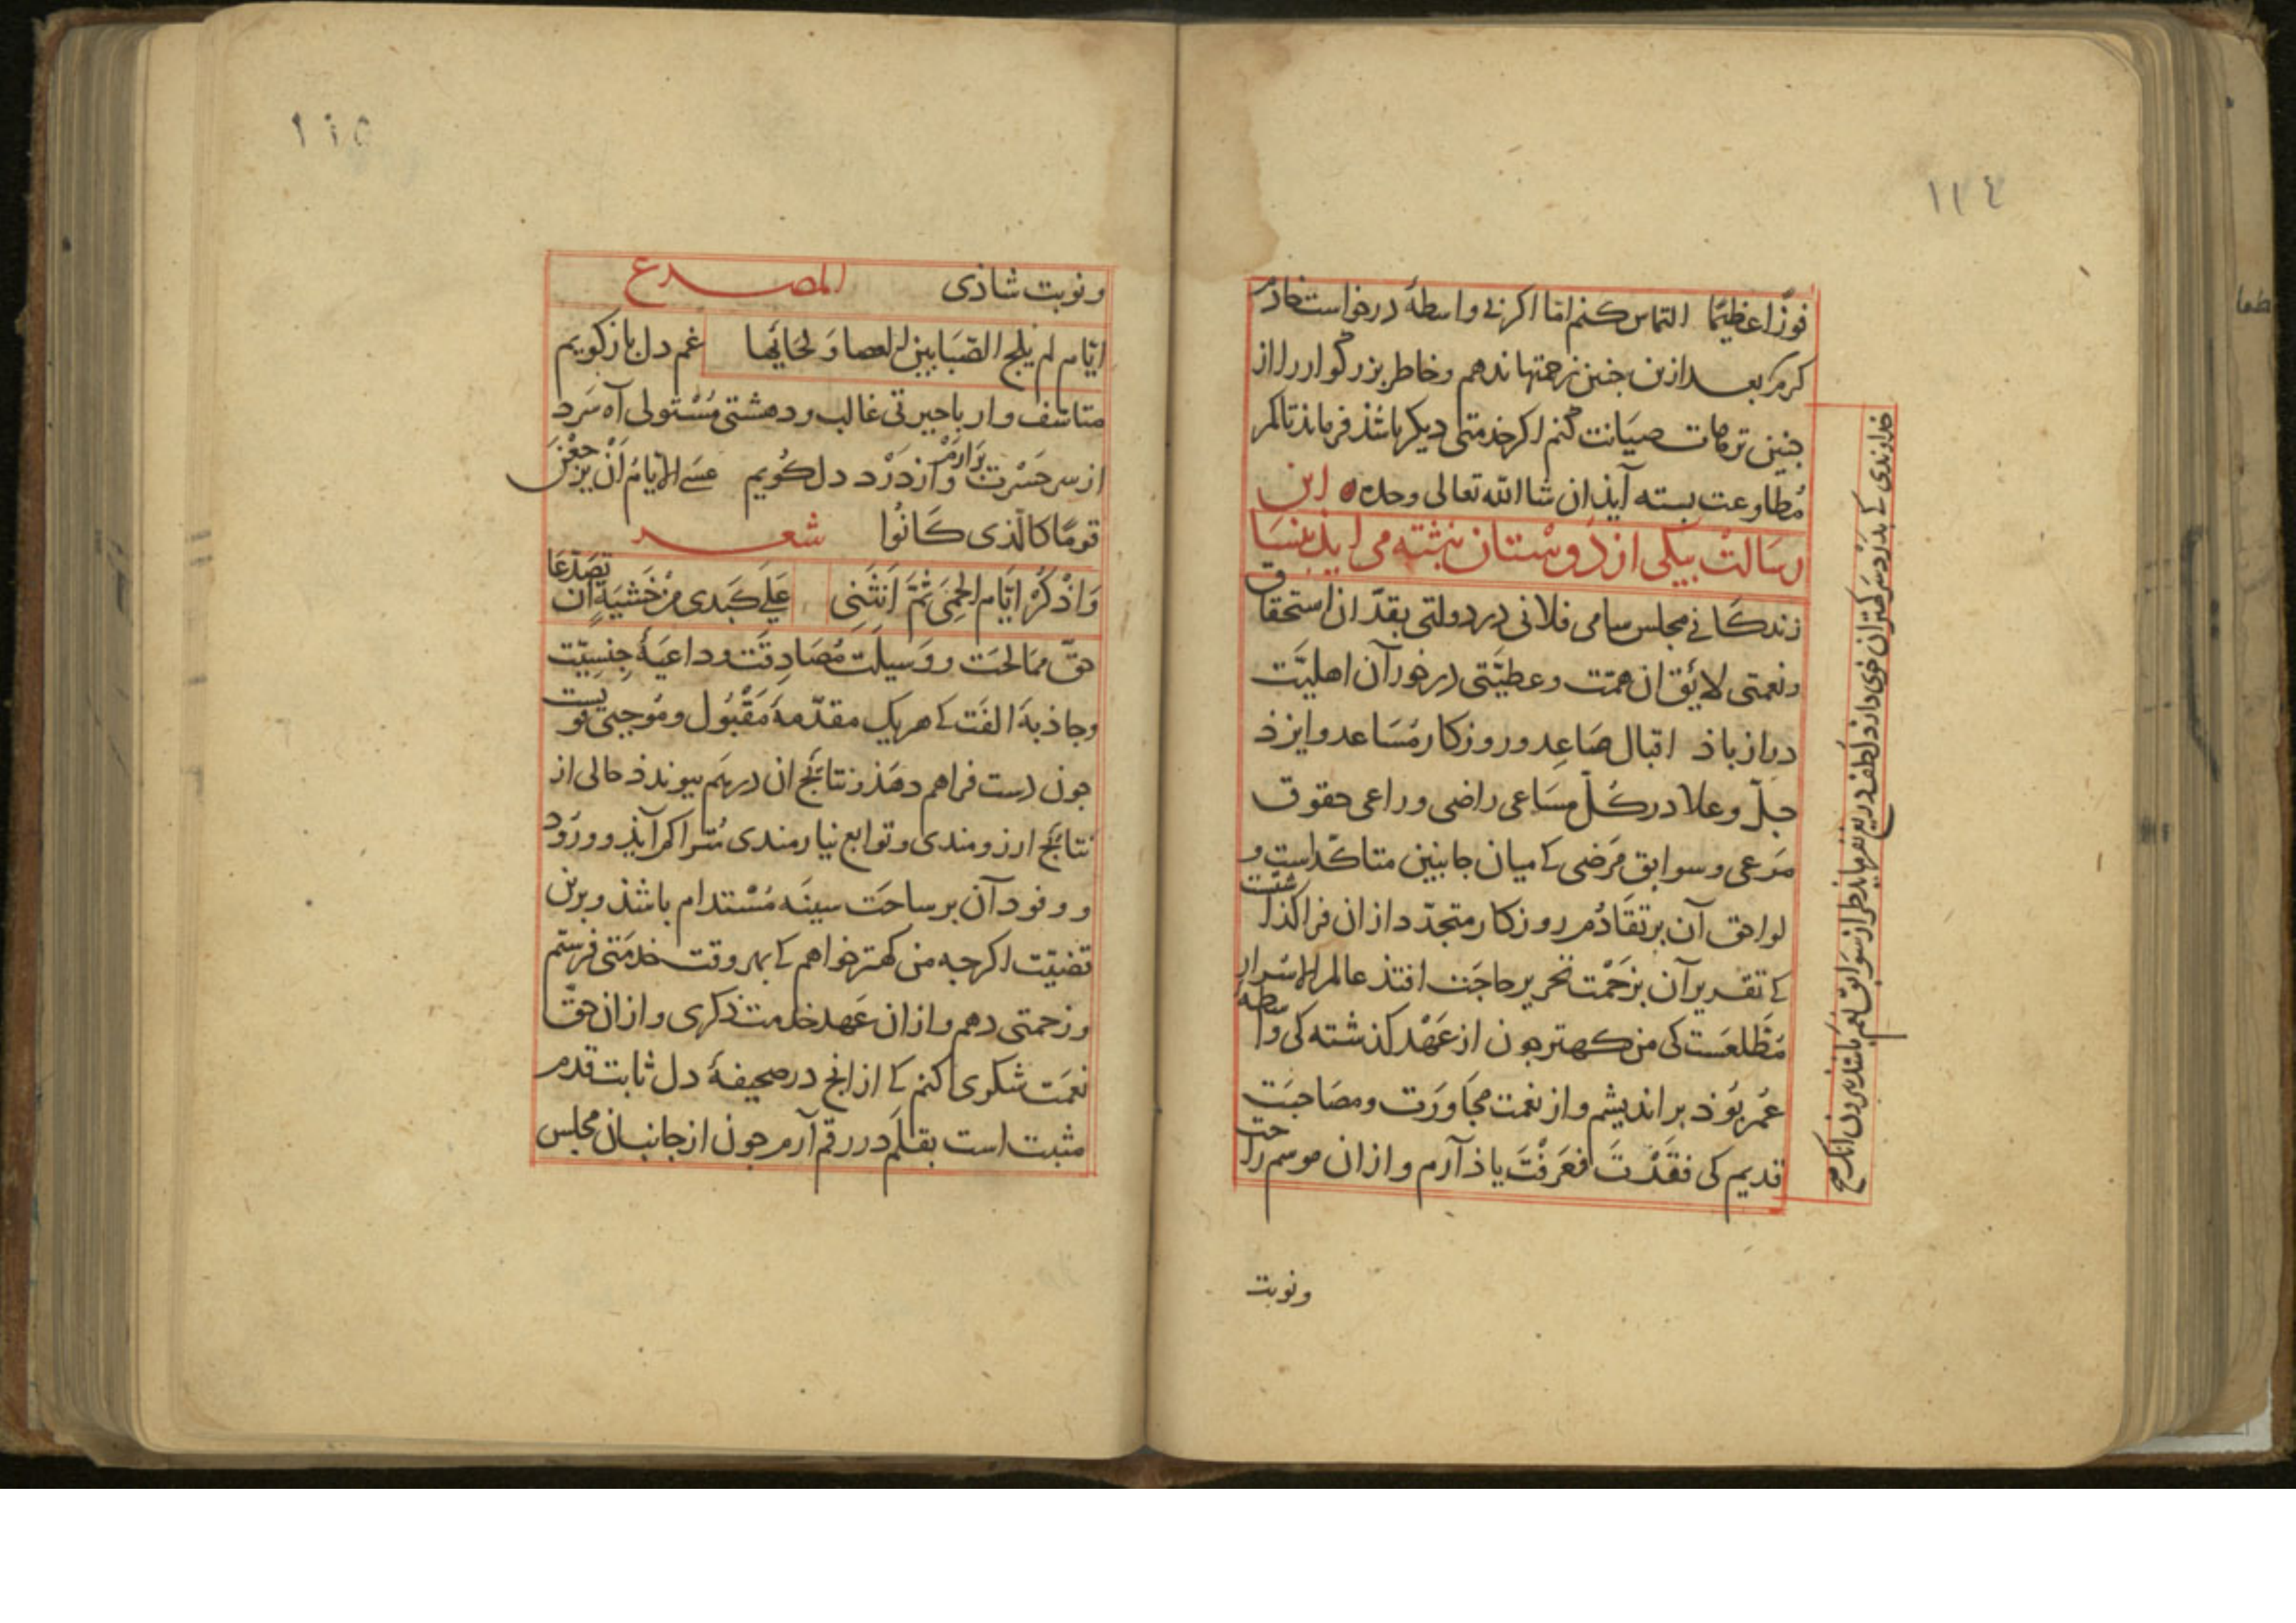 ١١٤
فوزًا عظیمًا التماس کنم اما اکر بی واسطهٔ درخواست خادم
کرم بعد ازین جنین زحمتها ندهم و خاطر بزرگوار را از
جنین ترهات صیانت کنم اکر خدمتی دیکر باشذ فرماید تا کمر
مطاوعت بسته آیذ ان شا الله تعالی وحده این
رسالت بیکی از دوستان نبشته می اید بنسا
زندکانی مجلس سامی فلانی در دولتی بقدّ ان استحقاق
و نعمتی لایق ان همّت و عطیّتی در خور آن اهلیّت
دراز باذ اقبال صاعد و روزکار مساعد و ایزذ
جلّ و علا در کلّ مساعی راضی و راعی حقوق
مرعی و سوابق مرضی کے میان جانبین متاکّد است و
لواحق آن بر تقادم روزکار متجدّد از ان فرا کذشت
کے تقدیر آن بزحمت تحریر حاجت افتذ عالم الاسرار
مطّلعست کی من کهتر جون از عهد کذشته کی واسطهٔ
عمر بوذ براندیشم و از نعمت مجاورت و مصاحبت
قدیم کی فقدت فعرفت یاذ آرم و از ان موسم راحت
ونوبت
خداوندی کے بذرد سر کهتران خوی دارد لطف دریغ نفرماید نظر از سوابق نعم باشذ بیرون انک
١١٥
و نوبت شاذی المصـــرع
ایّام لم یلج الصّبا بین العصا و لحائها غم دل باز کویم
متاسف وار با حیرتی غالب و دهشتی مستولی آه سرد
از سر حسرت برارم و از درد دل کویم عسی الایام ان یرجعن
قومًا کالّذی کانوا شعـــر
وَاذْکُرُ ایّام الحمی ثمّ انثنی علی کبدی من خشیة ان تصدّعا
حقّ ممالحت و وسیلت مصادقت و داعیهٔ جنسیّت
و جاذبهٔ الفت کے هریک مقدّمهٔ مقبول و موجبی قویست
جون دست فراهم دهذ و نتائج ان درهم بیوندذ حالی از
نتائج ارزومندی و توابع نیازمندی متراکم آیذ و ورود
و وفود آن بر ساحت سینه مستدام باشذ و برین
قضیّت اکرجه من کهتر خواهم کے بهر وقت خدمتی فرستم
و زحمتی دهم و از ان عهد خدمت ذکری و از ان حقّ
نعمت شکری کنم کے از انج در صحیفهٔ دل ثابت قدم
مثبت است بقلم در رقم آرم جون از جانب ان مجلس